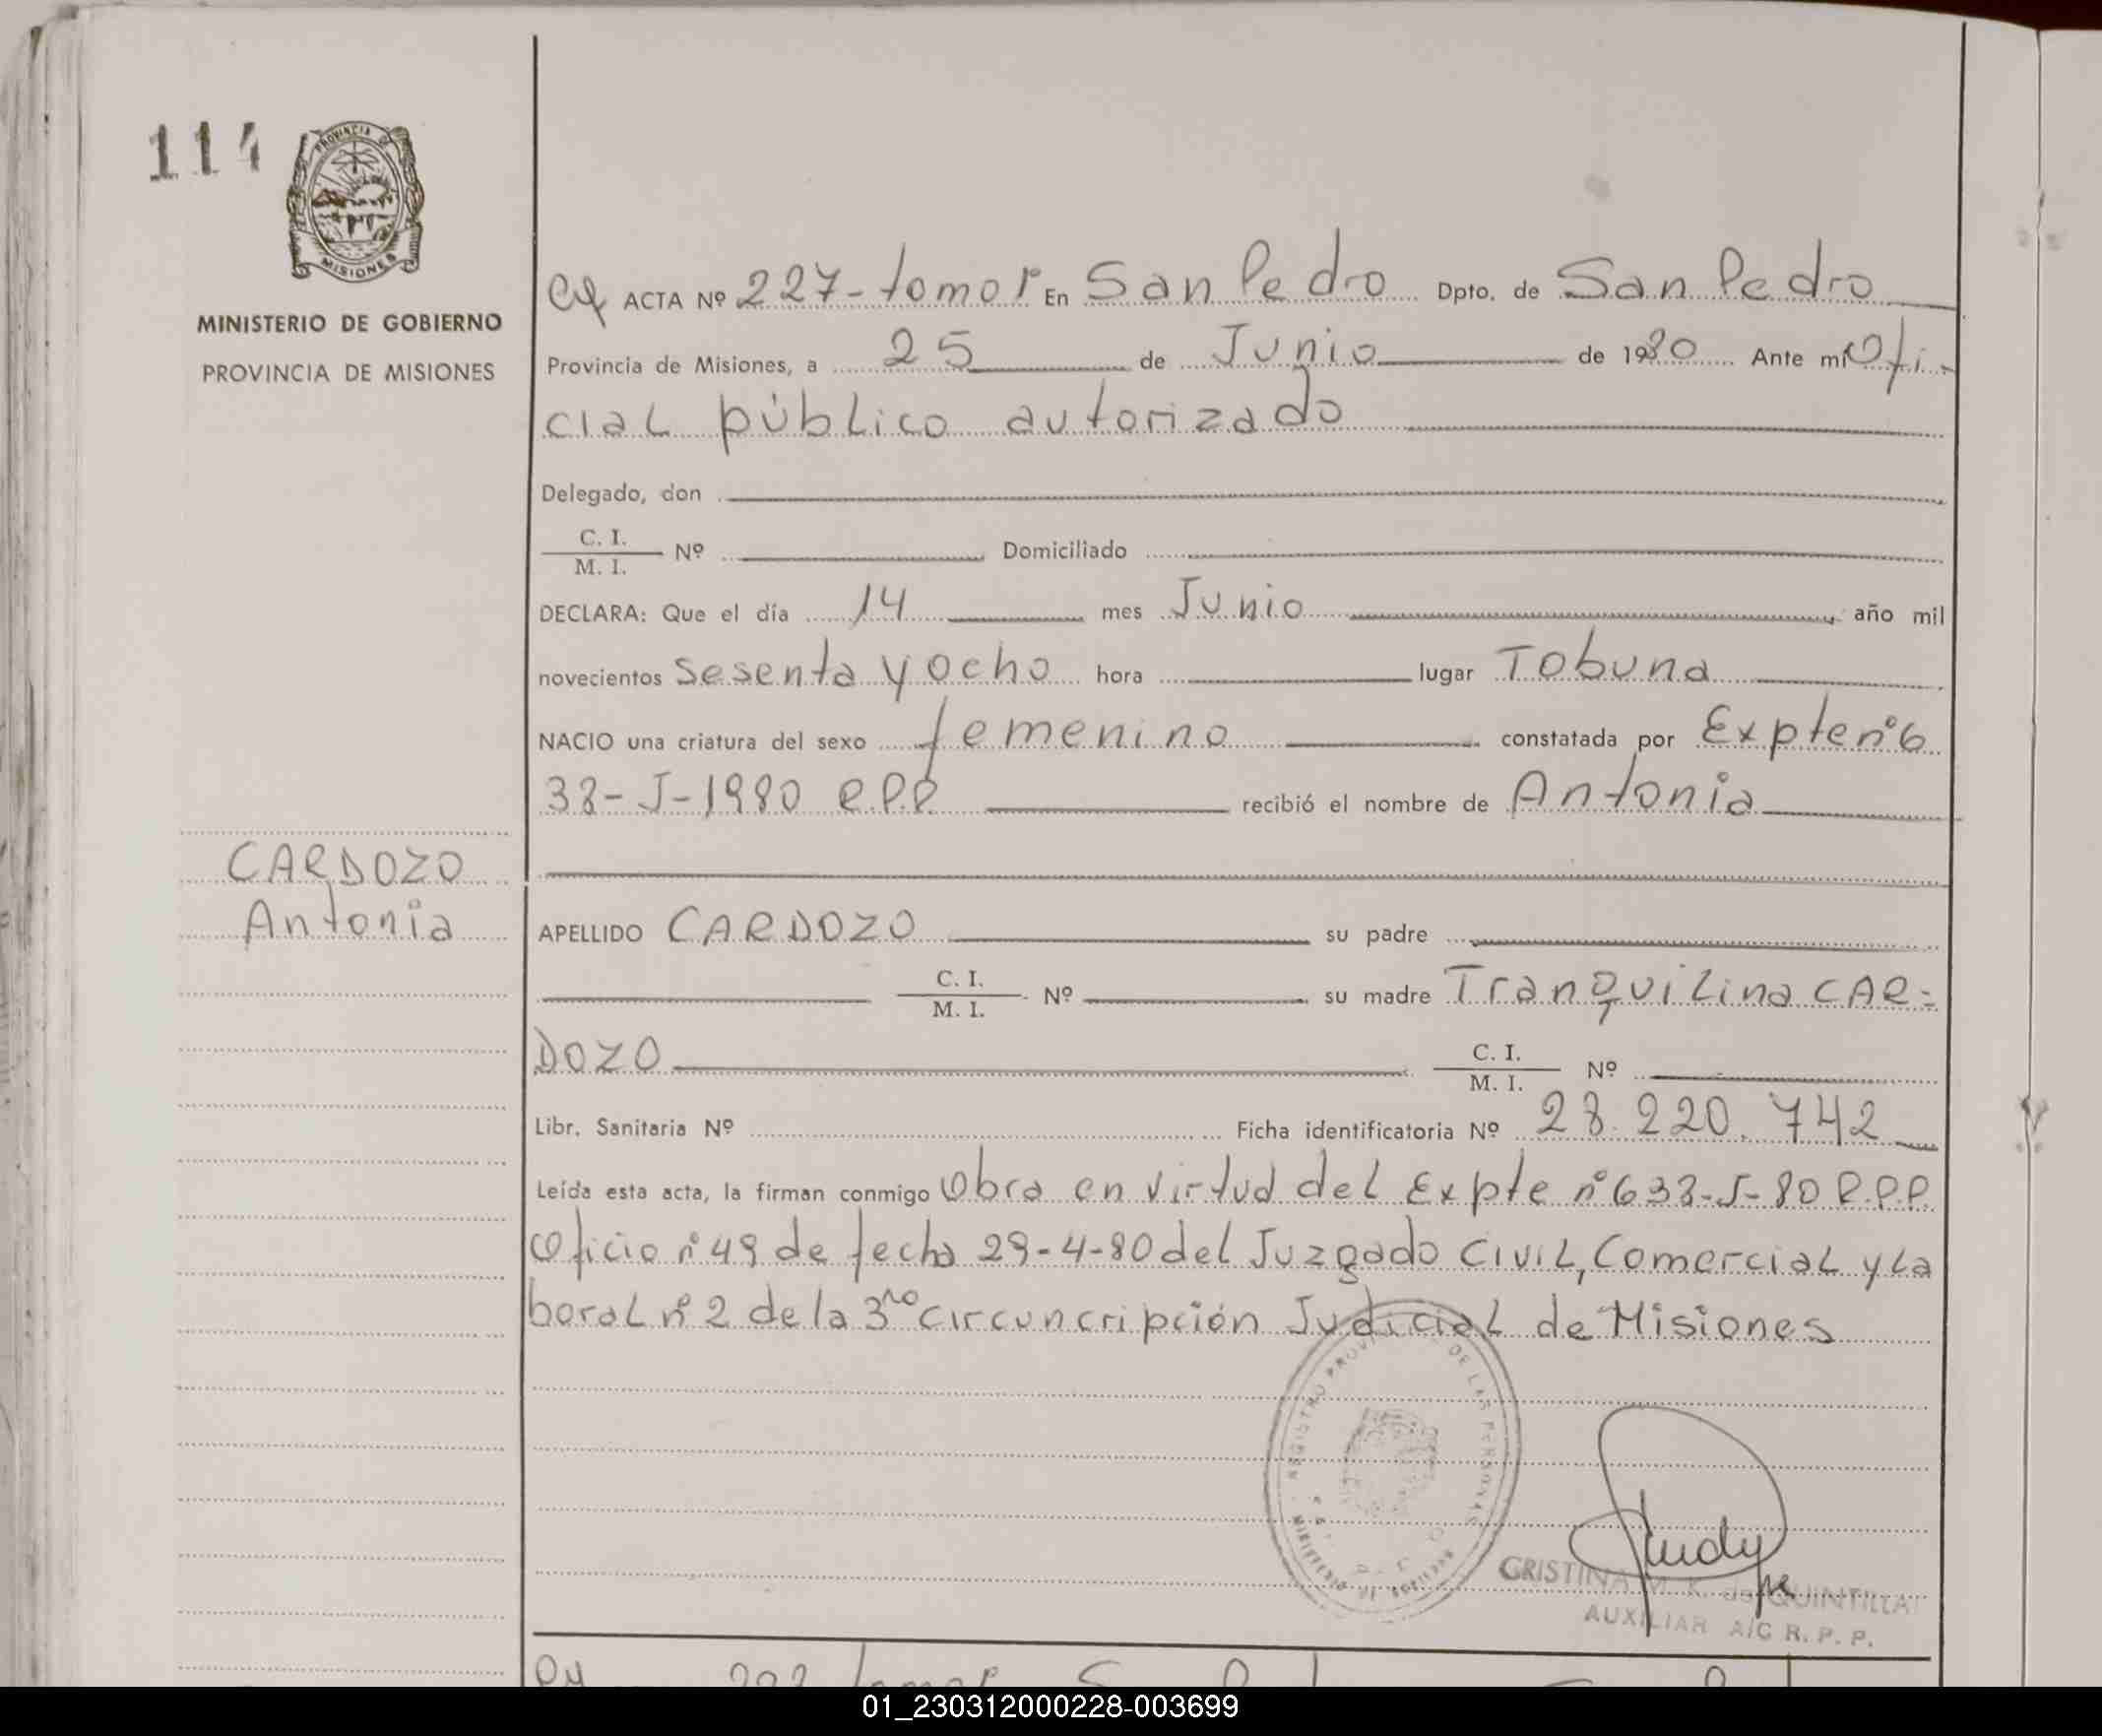 114
PROVINCIA DE
MISIONES
MINISTERIO DE GOBIERNO
PROVINCIA DE MISIONES
ACTA Nº 227-tomo 1º En San Pedro Dpto. de San Pedro
Provincia de Misiones, a 25 de Junio de 1980 Ante mí Ofi-
cial público autorizado
Delegado, don
C. I.
M. I. Nº Domiciliado
DECLARA: Que el día 14 mes Junio año mil
novecientos sesenta y ocho hora lugar Tobuna
NACIO una criatura del sexo femenino constatada por Expte nº 6
38-J-1980 R.P.P. recibió el nombre de Antonia
CARDOZO
Antonia
APELLIDO CARDOZO su padre
C. I.
M. I. Nº su madre Tranquilina CAR-
DOZO C. I.
M. I. Nº
Libr. Sanitaria Nº Ficha identificatoria Nº 28.220.742
Leída esta acta, la firman conmigo Obra en virtud del Expte nº 638-J-80 R.P.P.
Oficio nº 49 de fecha 29-4-80 del Juzgado Civil, Comercial y La
boral nº 2 de la 3ra circuncripción Judicial de Misiones
REGISTRO PROVINCIAL DE LAS PERSONAS
CRISTINA M. K. de QUINTILLA
AUXILIAR A/C R. P. P.
01_230312000228-003699